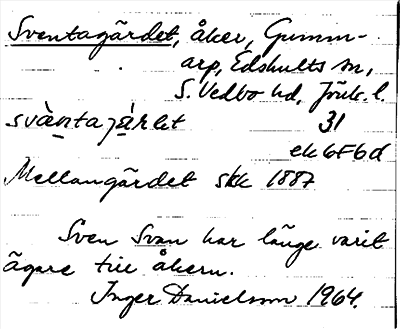 Sventagärdet, åker, Gumm-
arp, Edshults sn,
S. Vedbo hd, Jönk. l.
svæ̀ntajǽrlet 31
ek 6F6d
Mellangärdet skk 1887
Sven Svan har länge varit
ägare till åkern.
Inger Danielsson 1964.